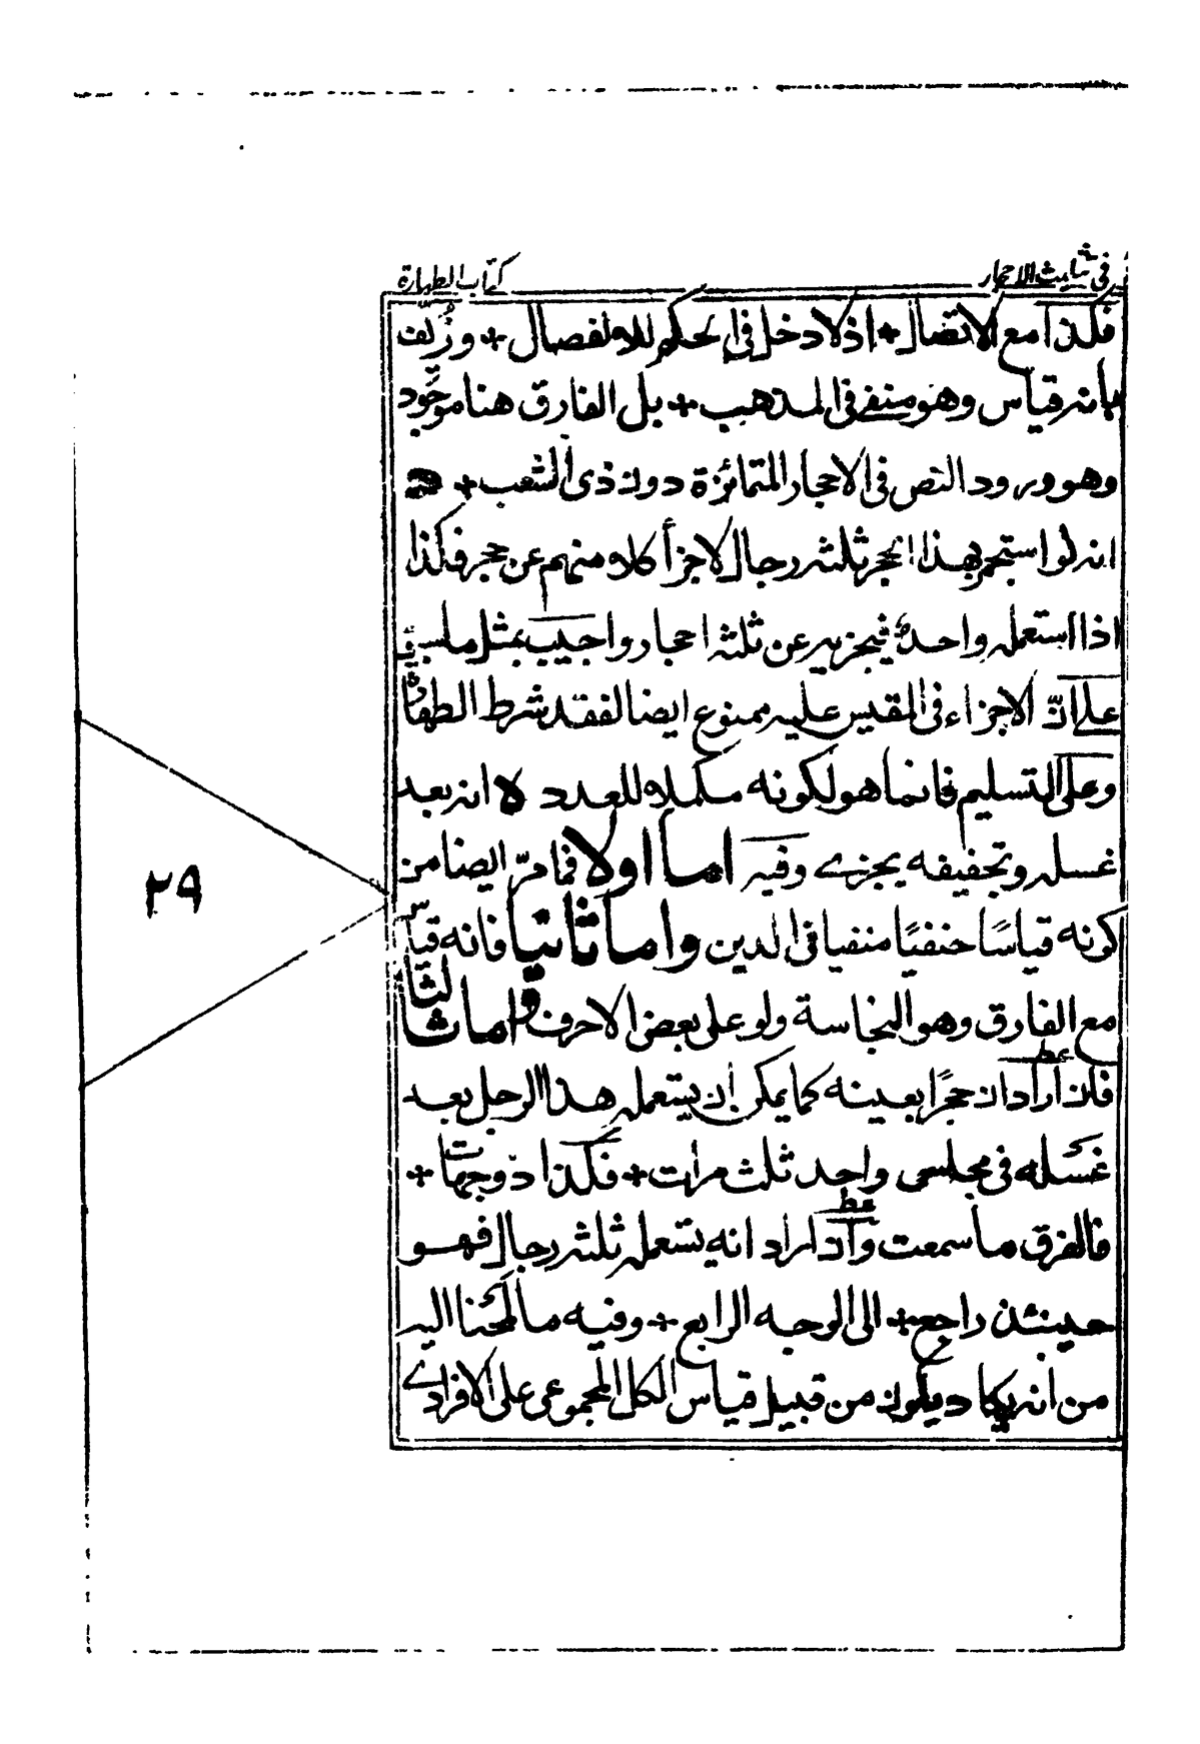 فى تثليث الاحجار
كتاب الطهارة
فكذا مع الاتصال + اذ لا دخل فى الحكم للانفصال + وزُيّف
بانه قياس وهو منفى فى المذهب + بل الفارق هنا موجود
وهو ورود النص فى الاحجار المتمائزة دون ذى الشعب + ه
انه لو استجمر بهذا الحجر ثلثه رجال لاجزأ كلا منهم عن حجر فكذا
اذا استعمله واحدٌ فيجزيه عن ثلثه احجار واجيب بمثل ما سبق
على انّ الاجزاء فى المقيس عليه ممنوع ايضا لفقد شرط الطهارة
وعلى التسليم فانما هو لكونه مكملا للعدد لا انه بعد
غسله وتجفيفه يجزى وفيه اما اولا فما مرّ ايضا من
كونه قياسًا حنفيًا منفيا فى الدين واما ثانيا فانه قياس
مع الفارق وهو النجاسة ولو على بعض الاحرف واما ثالثا
فلان اراد ان حجرًا بعينه كما يمكن أن يستعمله هذا الرجل بعد
غسله فى مجلس واحد ثلث مرات + فكذا ذو جهات +
فالفرق ما سمعت وان اراد انه يستعمله ثلثه رجال فهو
حينئذ راجع + الى الوجه الرابع + وفيه ما لمحنا اليه
من انه يكاد يكون من قبيل قياس الكل المجموعى على الافرادى
٢٩